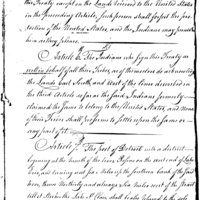 this Treaty except on the Lands reserved to the United States
in the preceding Articles, such person shall forfeit the pro-
tection of the United States, and the Indians may punish
him as they please.
Article 6. The Indians who sign this Treaty, as
well in behalf of all their Tribes, as of themselves do acknowledge
the Lands East, South and West of the lines described
in the third Article, so far as the said Indians formerly
claimed the same, to belong to the United States, and none
of their Tribes shall presume to settle upon the same, or
any part of it.
Article 7. The Post of Detroit with a district
beginning at the mouth of the River Rosine on the west end of Lake
Erie, and running west six miles up the southern bank of the said
River, thence Northerly and always six miles west of the Strait
till it strikes the Lake St. Clair, shall be also reserved to the sole